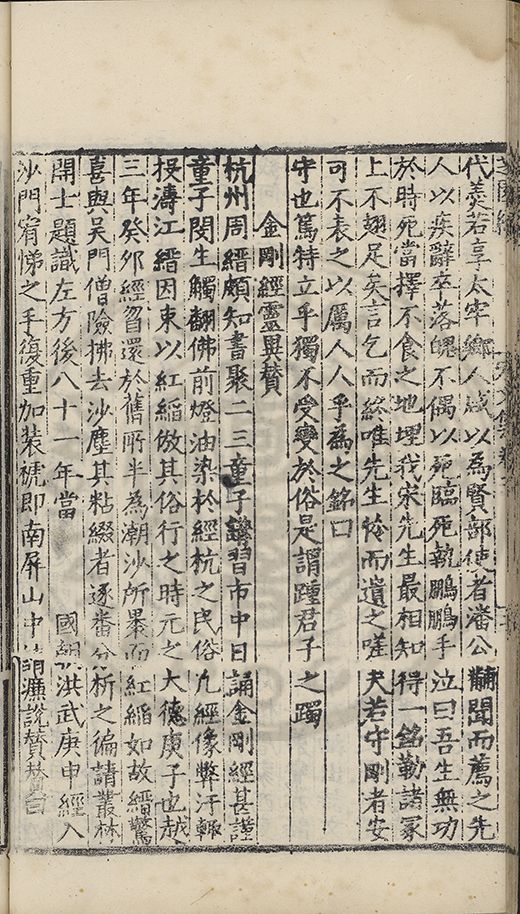 代羹若享太牢鄉人咸以為賢部使者潘公黼聞而薦之先
人以疾辭卒落魄不偶以死臨死執鵬鵬手泣曰吾生無功
於時死當擇不食之地埋我宋先生最相知得一銘勒諸冢
上不翅足矣言乞而終唯先生怜而遺之嗟夫若守剛者安
可不表之以厲人人乎為之銘曰
守也篤特立乎獨不受變於俗是謂踵君子之躅
金剛經靈異贊
杭州周緍頗知書聚二三童子講習市中日誦金剛經甚謹
童子閔生觸翻佛前燈油染於經杭之民俗凡經像弊汙輒
投濤江緍因束以紅綃倣其俗行之時元之大德庚子也越
三年癸夘經忽還於舊所半為潮沙所暴而紅綃如故緍驚
喜與吴門僧險拂去沙塵其粘綴者逐番分析之徧請叢林
開士題識左方後八十一年當 國朝洪武庚申經入
沙門宥悌之手復重加装褫即南屏山中請濂說贊贊曰